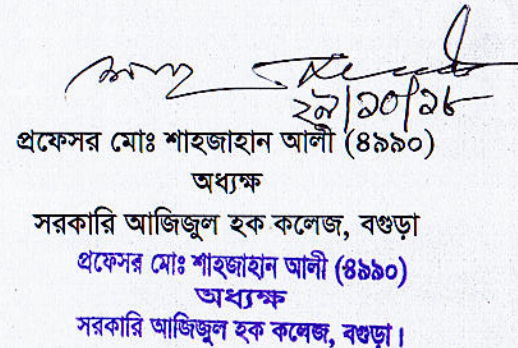 ২৯/১০/১৮
প্রফেসর মোঃ শাহজাহান আলী (৪৯৯০)
অধ্যক্ষ
সরকারি আজিজুল হক কলেজ, বগুড়া
প্রফেসর মোঃ শাহজাহান আলী (৪৯৯০)
অধ্যক্ষ
সরকারি আজিজুল হক কলেজ, বগুড়া।